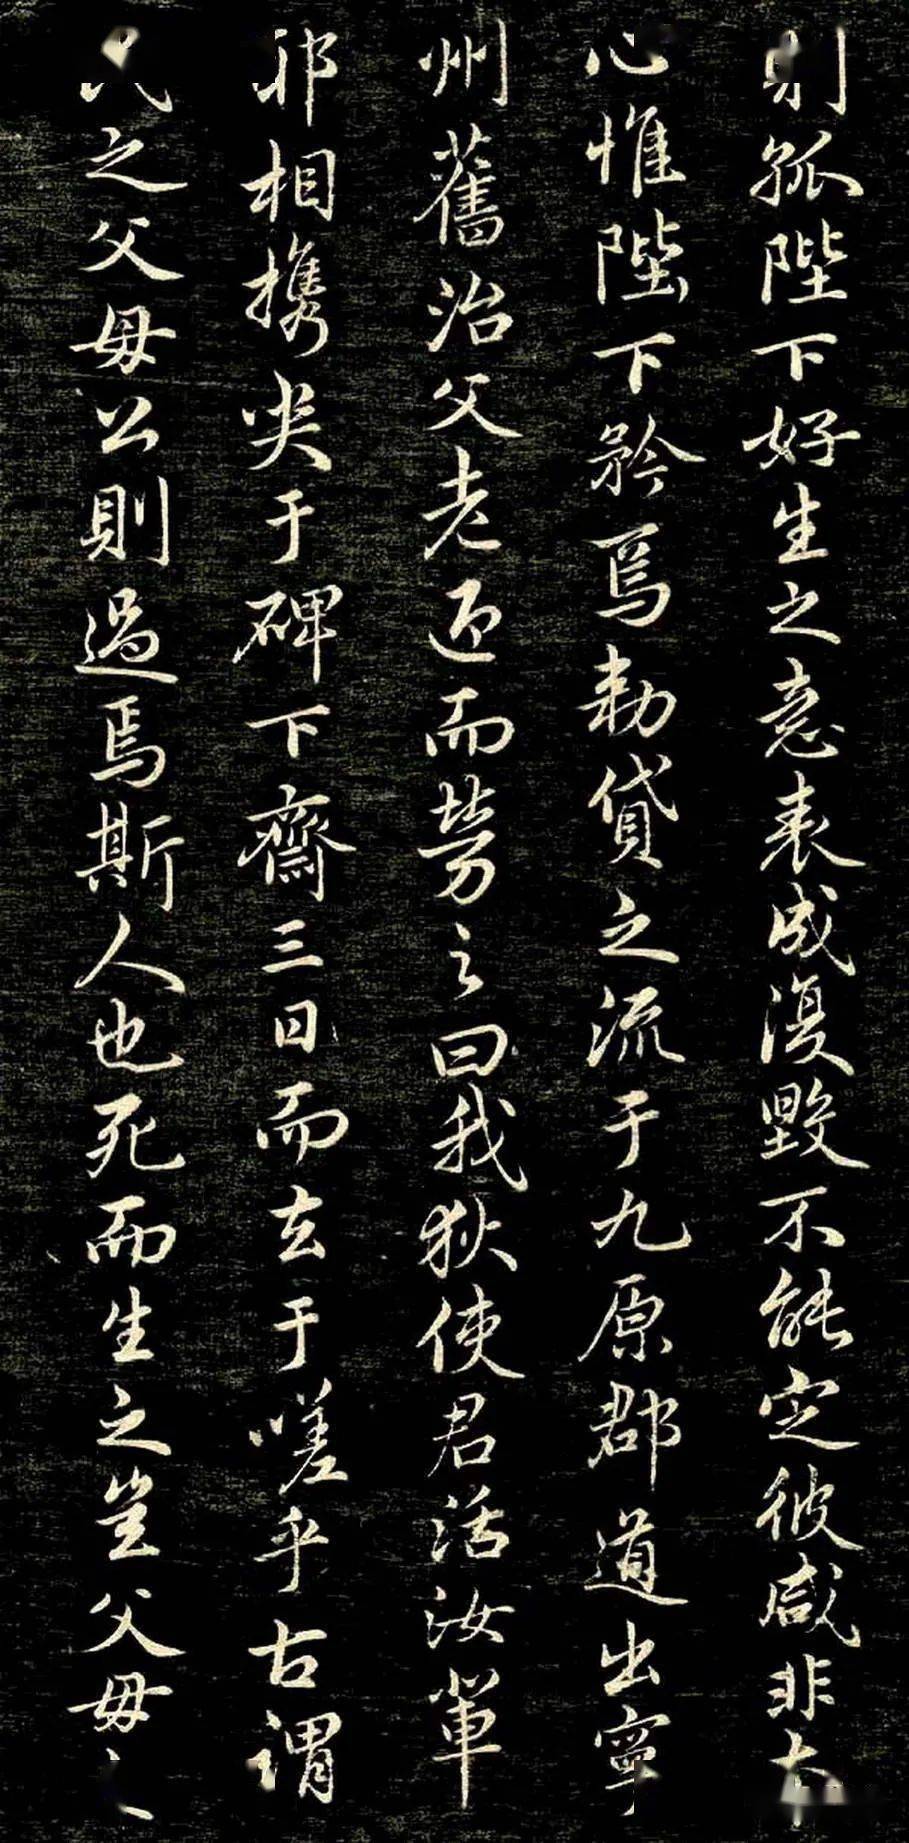 則孤陛下好生之意表成復毀不能定彼咸非本
心惟陛下矜焉勅貸之流于九原郡道出寧
州舊治父老迎而勞之曰我狄使君活汝軰
耶相携哭于碑下齋三日而去于嗟乎古謂
民之父母公則過焉斯人也死而生之豈父母之